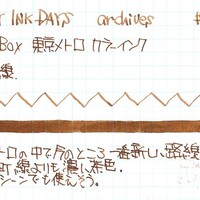 INK DAYS archives #
Box 東京メトロ カラーインク
線.
トロの中で今のところ一番新しい路線
町線よりも濃い茶色.
シーンでも使えそう.